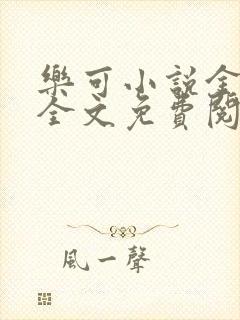 樂可小説全
全文免費閱
風一聲